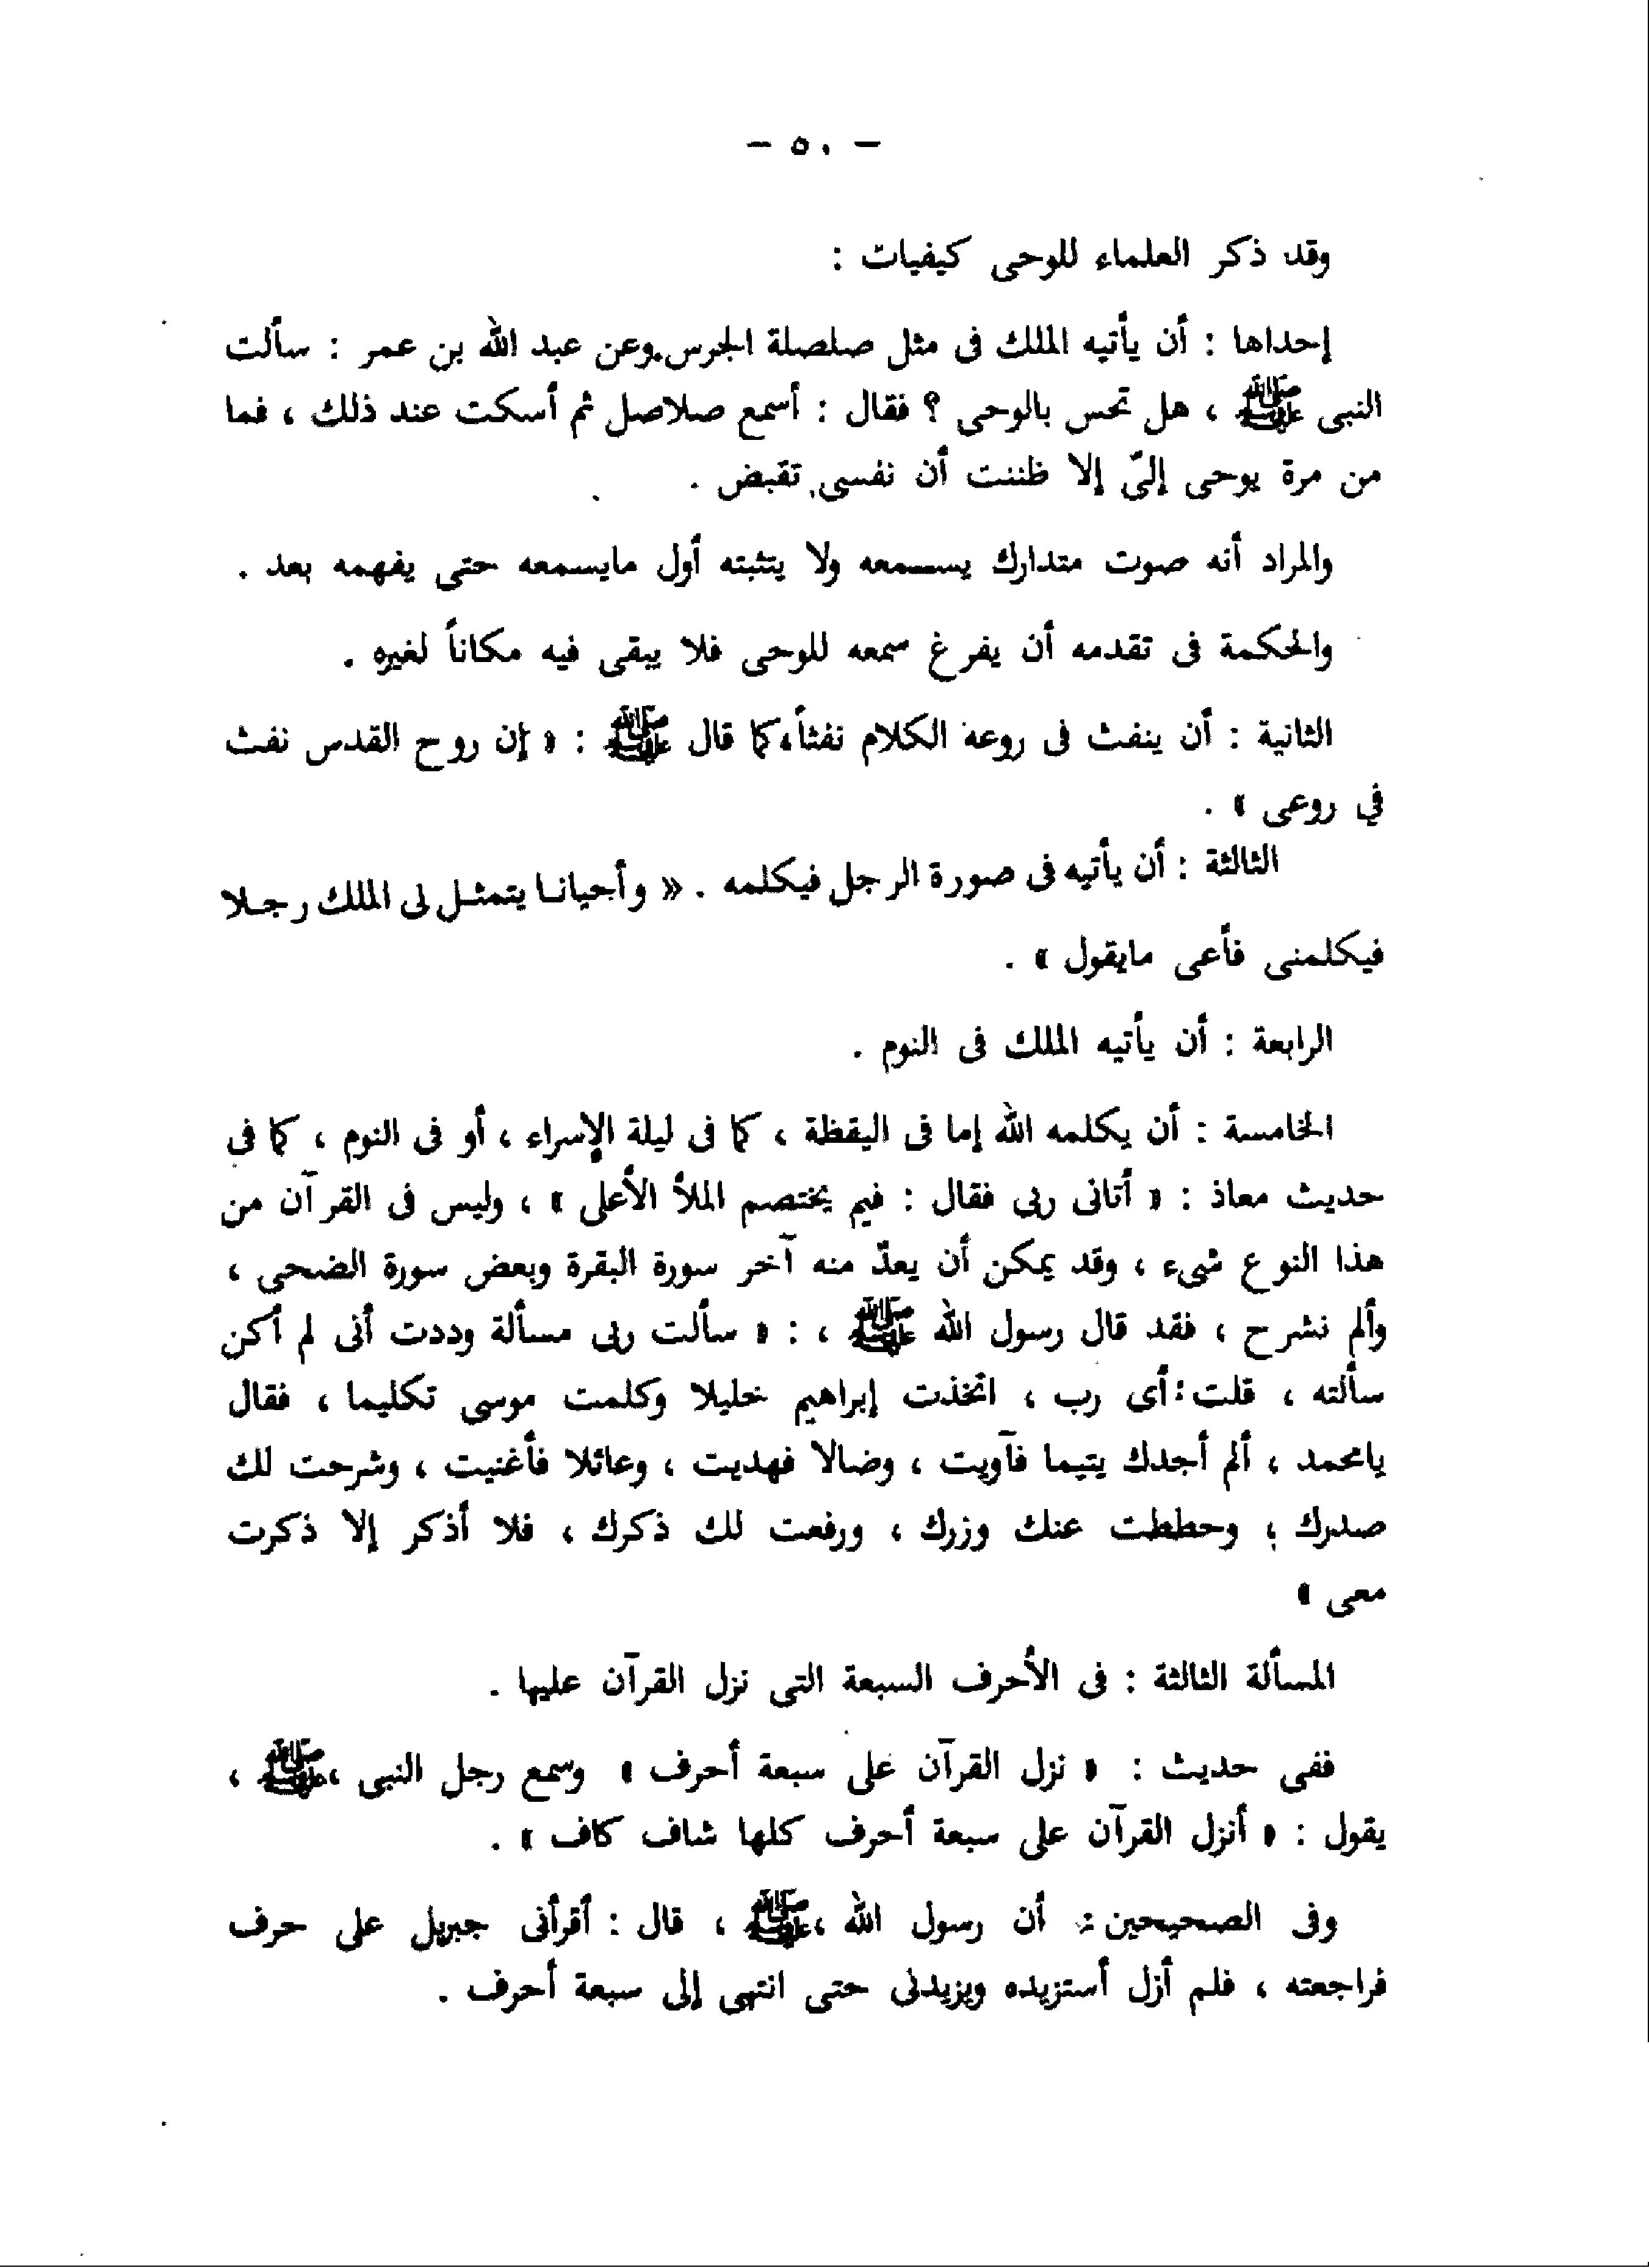 — ٥٠ —
وقد ذكر العلماء للوحى كيفيات :
إحداها : أن يأتيه الملك فى مثل صلصلة الجرس.وعن عبد الله بن عمر : سألت
النبى ﷺ ، هل تحس بالوحى ؟ فقال : أسمع صلاصل ثم أسكت عند ذلك ، فما
من مرة يوحى إلىّ إلا ظننت أن نفسى تقبض .
والمراد أنه صوت متدارك يسمعه ولا يتثبته أول مايسمعه حتى يفهمه بعد .
والحكمة فى تقدمه أن يفرغ سمعه للوحى فلا يبقى فيه مكاناً لغيره .
الثانية : أن ينفث فى روعه الكلام نفثاً،كما قال ﷺ : « إن روح القدس نفث
في روعى » .
الثالثة : أن يأتيه فى صورة الرجل فيكلمه . « وأحيانا يتمثل لى الملك رجلا
فيكلمنى فأعى مايقول » .
الرابعة : أن يأتيه الملك فى النوم .
الخامسة : أن يكلمه الله إما فى اليقظة ، كما فى ليلة الإسراء ، أو فى النوم ، كما فى
حديث معاذ : « أتانى ربى فقال : فيم يختصم الملأ الأعلى » ، وليس فى القرآن من
هذا النوع شىء ، وقد يمكن أن يعدّ منه آخر سورة البقرة وبعض سورة الضحى ،
وألم نشرح ، فقد قال رسول الله ﷺ ، : « سألت ربى مسألة وددت أنى لم أكن
سألته ، قلت : أى رب ، اتخذت إبراهيم خليلا وكلمت موسى تكليما ، فقال
يامحمد ، ألم أجدك يتيما فآويت ، وضالا فهديت ، وعائلا فأغنيت ، وشرحت لك
صدرك ؛ وحططت عنك وزرك ، ورفعت لك ذكرك ، فلا أذكر إلا ذكرت
معى »
المسألة الثالثة : فى الأحرف السبعة التى نزل القرآن عليها .
ففى حديث : « نزل القرآن على سبعة أحرف » وسمع رجل النبى ،ﷺ ،
يقول : « أنزل القرآن على سبعة أحرف كلها شاف كاف » .
وفى الصحيحين : أن رسول الله ،ﷺ ، قال : أقرأنى جبريل على حرف
فراجعته ، فلم أزل أستزيده ويزيدنى حتى انتهى إلى سبعة أحرف .